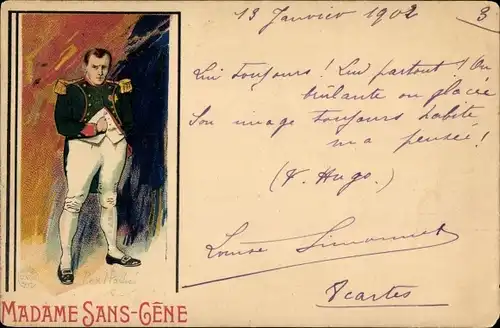 13 Janvier 1902 3
Lui toujours ! Lui partout ! Ou
brûlante ou glacée
Son image toujours habite
ma pensée !
(V. Hugo.)
Louise Simonnet
8 cartes
MADAME SANS-GÊNE